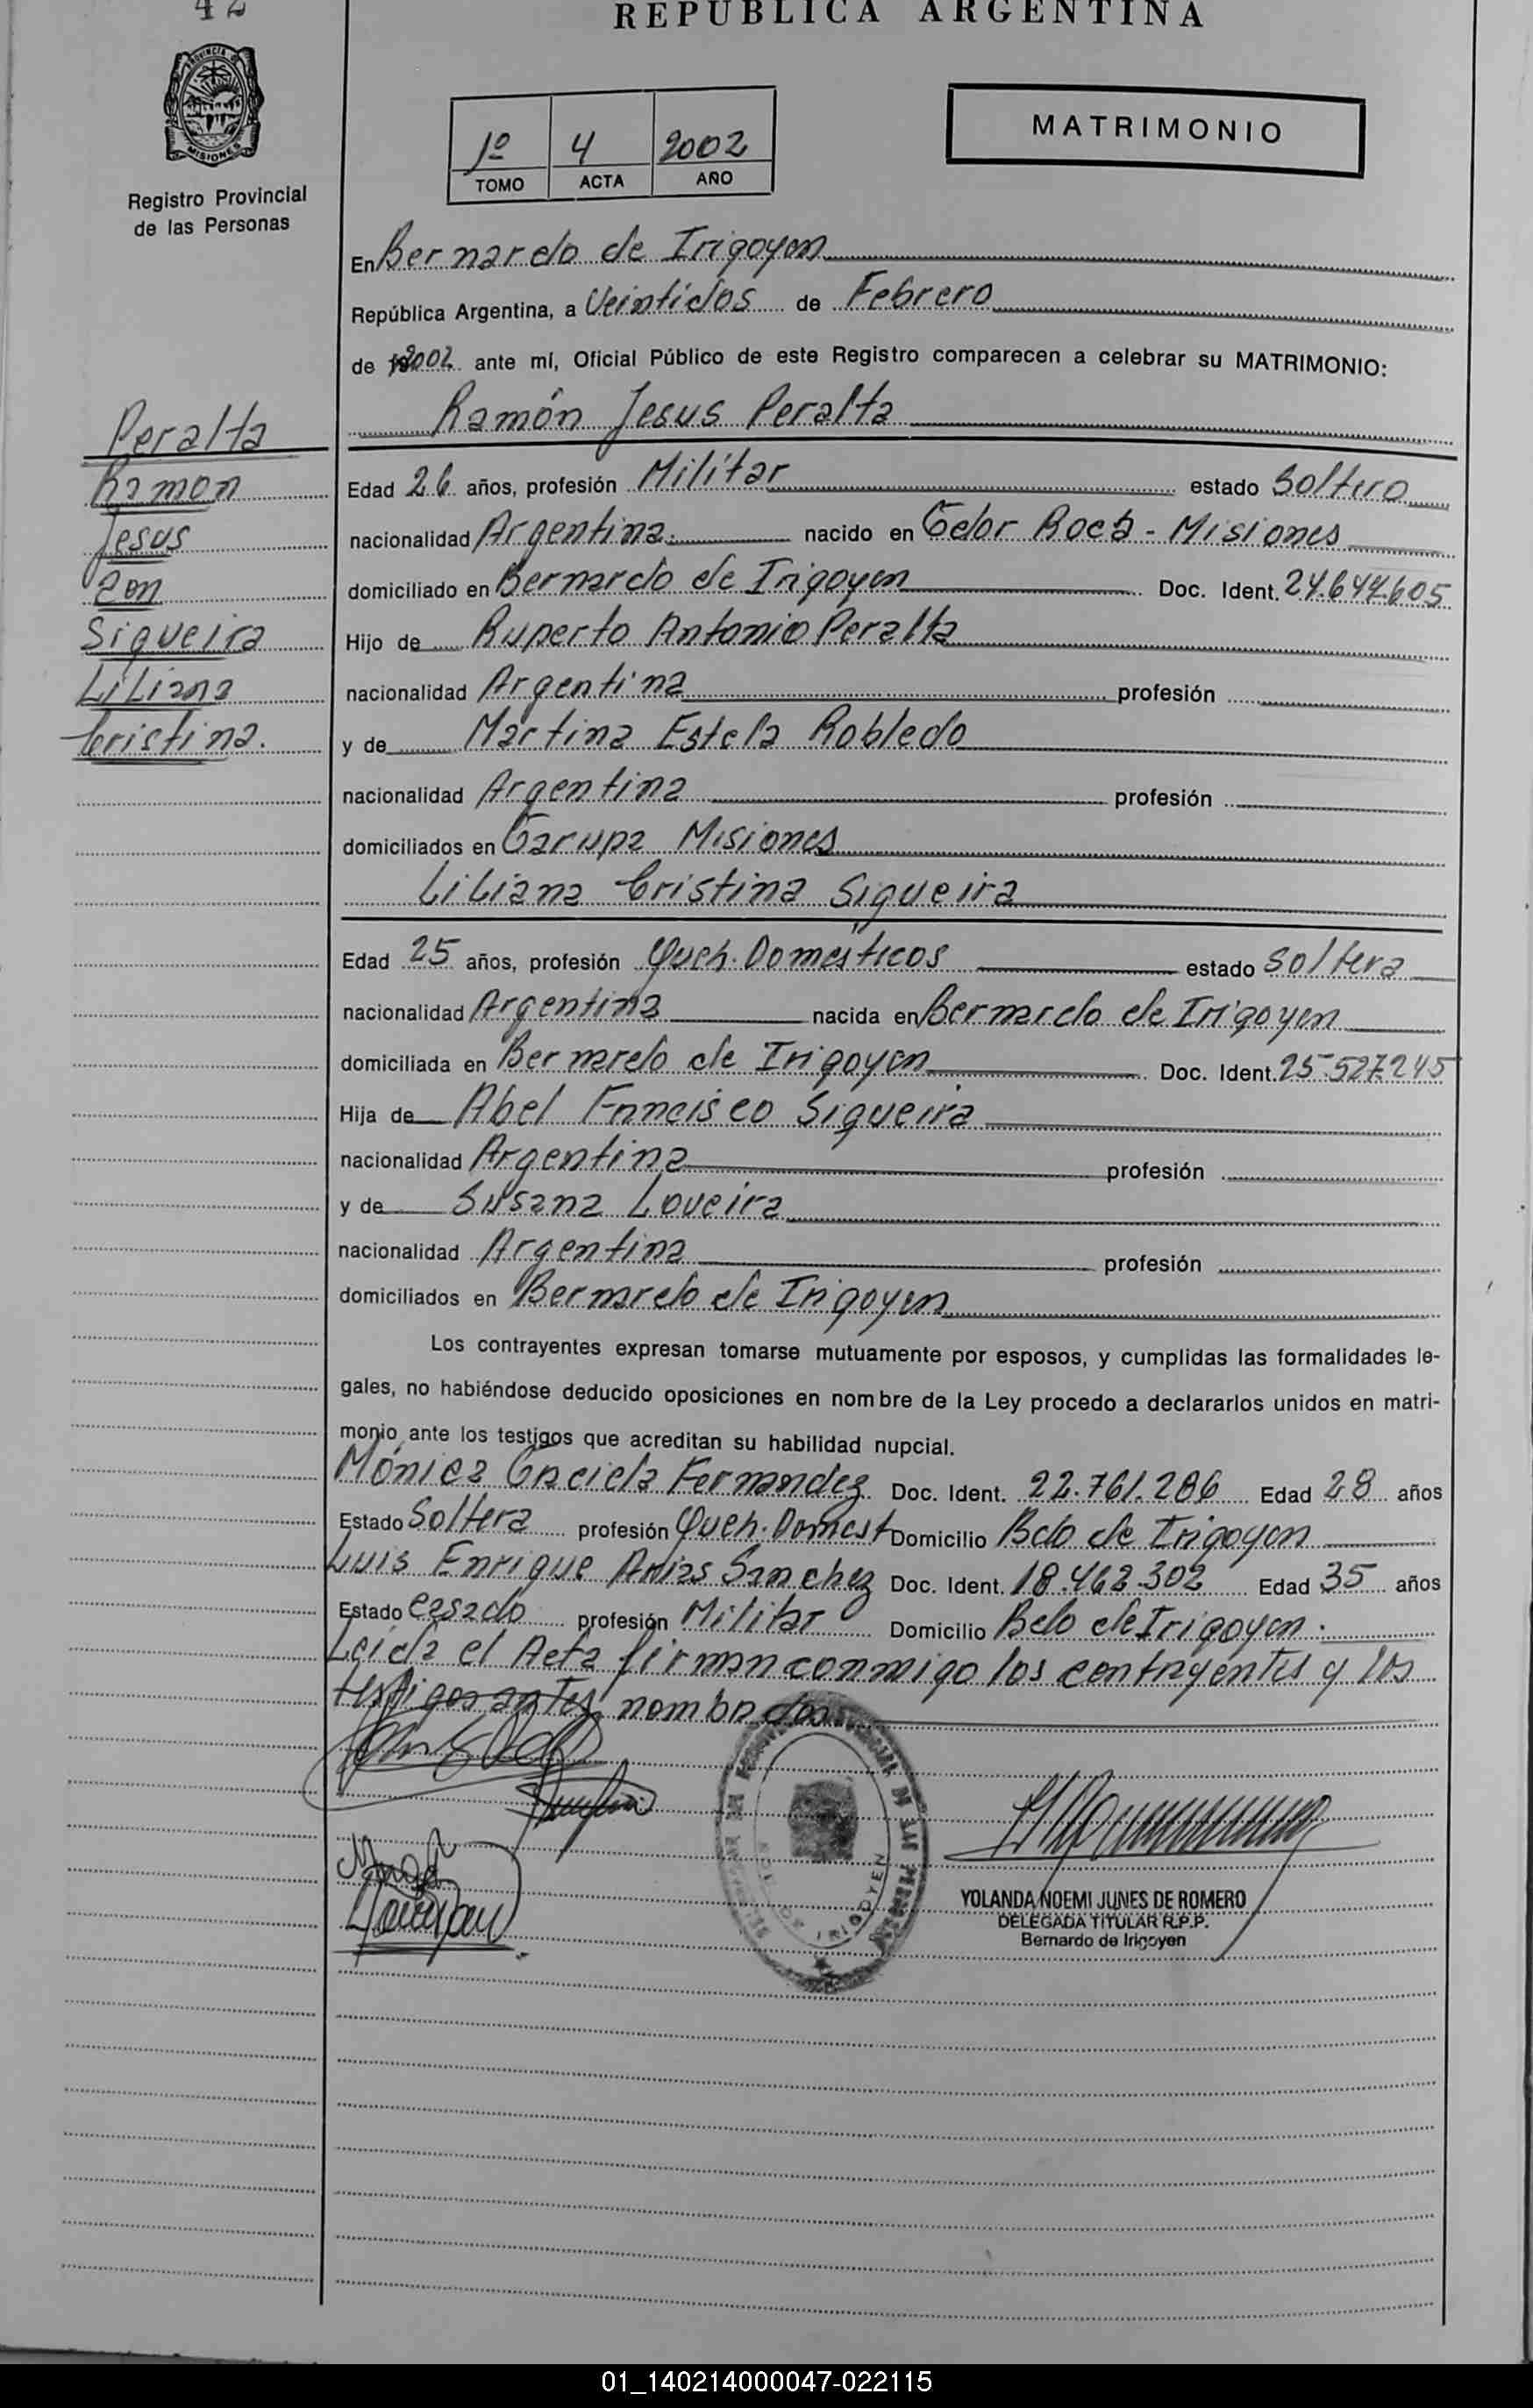 42
REPUBLICA ARGENTINA
MISIONES
Registro Provincial
de las Personas
1º 4 2002
TOMO ACTA AÑO
MATRIMONIO
En Bernardo de Irigoyen
República Argentina, a Veintidos de Febrero
de 2002 ante mí, Oficial Público de este Registro comparecen a celebrar su MATRIMONIO:
Ramón Jesus Peralta
Peralta
Ramon
Jesus
con
Siqueira
Liliana
Cristina.
Edad 26 años, profesión Militar estado Soltero
nacionalidad Argentina. nacido en Gdor Roca - Misiones
domiciliado en Bernardo de Irigoyen Doc. Ident. 24.644.605
Hijo de Ruperto Antonio Peralta
nacionalidad Argentina profesión
y de Martina Estela Robledo
nacionalidad Argentina profesión
domiciliados en Garupa Misiones
Liliana Cristina Siqueira
Edad 25 años, profesión Queh. Domésticos estado Soltera
nacionalidad Argentina nacida en Bernardo de Irigoyen
domiciliada en Bernardo de Irigoyen Doc. Ident. 25.527.245
Hija de Abel Francisco Siqueira
nacionalidad Argentina profesión
y de Susana Loveira
nacionalidad Argentina profesión
domiciliados en Bernardo de Irigoyen
Los contrayentes expresan tomarse mutuamente por esposos, y cumplidas las formalidades le-
gales, no habiéndose deducido oposiciones en nombre de la Ley procedo a declararlos unidos en matri-
monio ante los testigos que acreditan su habilidad nupcial.
Mónica Graciela Fernandez Doc. Ident. 22.761.286 Edad 28 años
Estado Soltera profesión Queh. Domest Domicilio Bdo de Irigoyen
Luis Enrique Arias Sanchez Doc. Ident. 18.462.302 Edad 35 años
Estado casado profesión Militar Domicilio Bdo de Irigoyen.
Leida el Acta firman conmigo los contrayentes y los
testigos antes nombrados.
IRIGOYEN
YOLANDA NOEMI JUNES DE ROMERO
DELEGADA TITULAR R.P.P.
Bernardo de Irigoyen
01_140214000047-022115